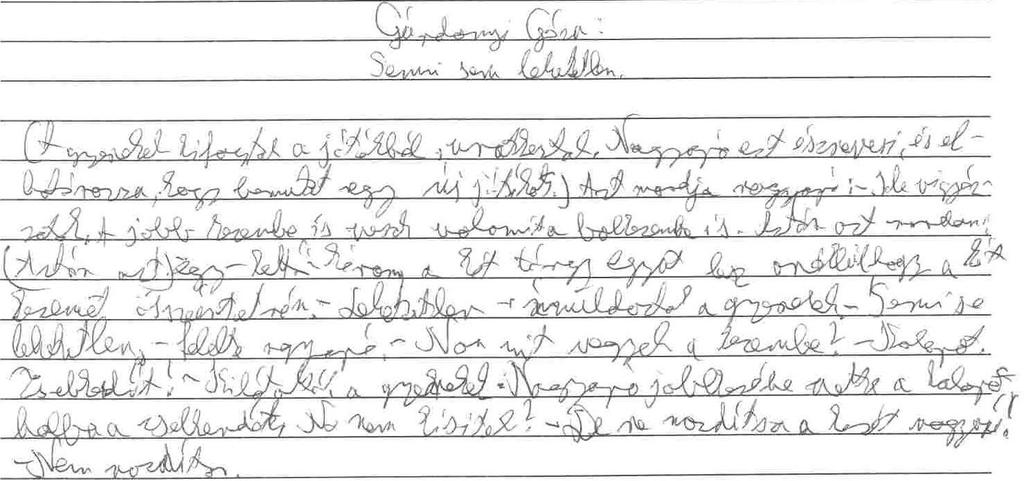 Gárdonyi Géza:
Semmi sem lehetetlen.
(A gyerekek kifogytak a játékból, unatkoztak. Nagyapó ezt észreveszi, és el-
határozza, hogy bemutat egy új játékot.) Azt mondja nagyapó: - Ide vigyáz-
zatok. A jobb kezembe is veszek valamit a balkezembe is. Aztán azt mondom:
(Aztán azt) Egy - kettő - három a két tárgy egyet lesz anélkül hogy a két
kezemet összeérteném. - Lehetetlen - ámuldoztak a gyerekek. - Semmi se
lehetetlen, - felelte nagyapó. - Non mit vegyek a kezembe? - Kalapot.
Zsebkendőt! - a gyerekek. Nagyapó jobbkezébe vette a kalapot
balba a zsebkendőt. No nem hiszitek? - De ne mozdítsa a kezét nagyapó!
- Nem mozdítom.